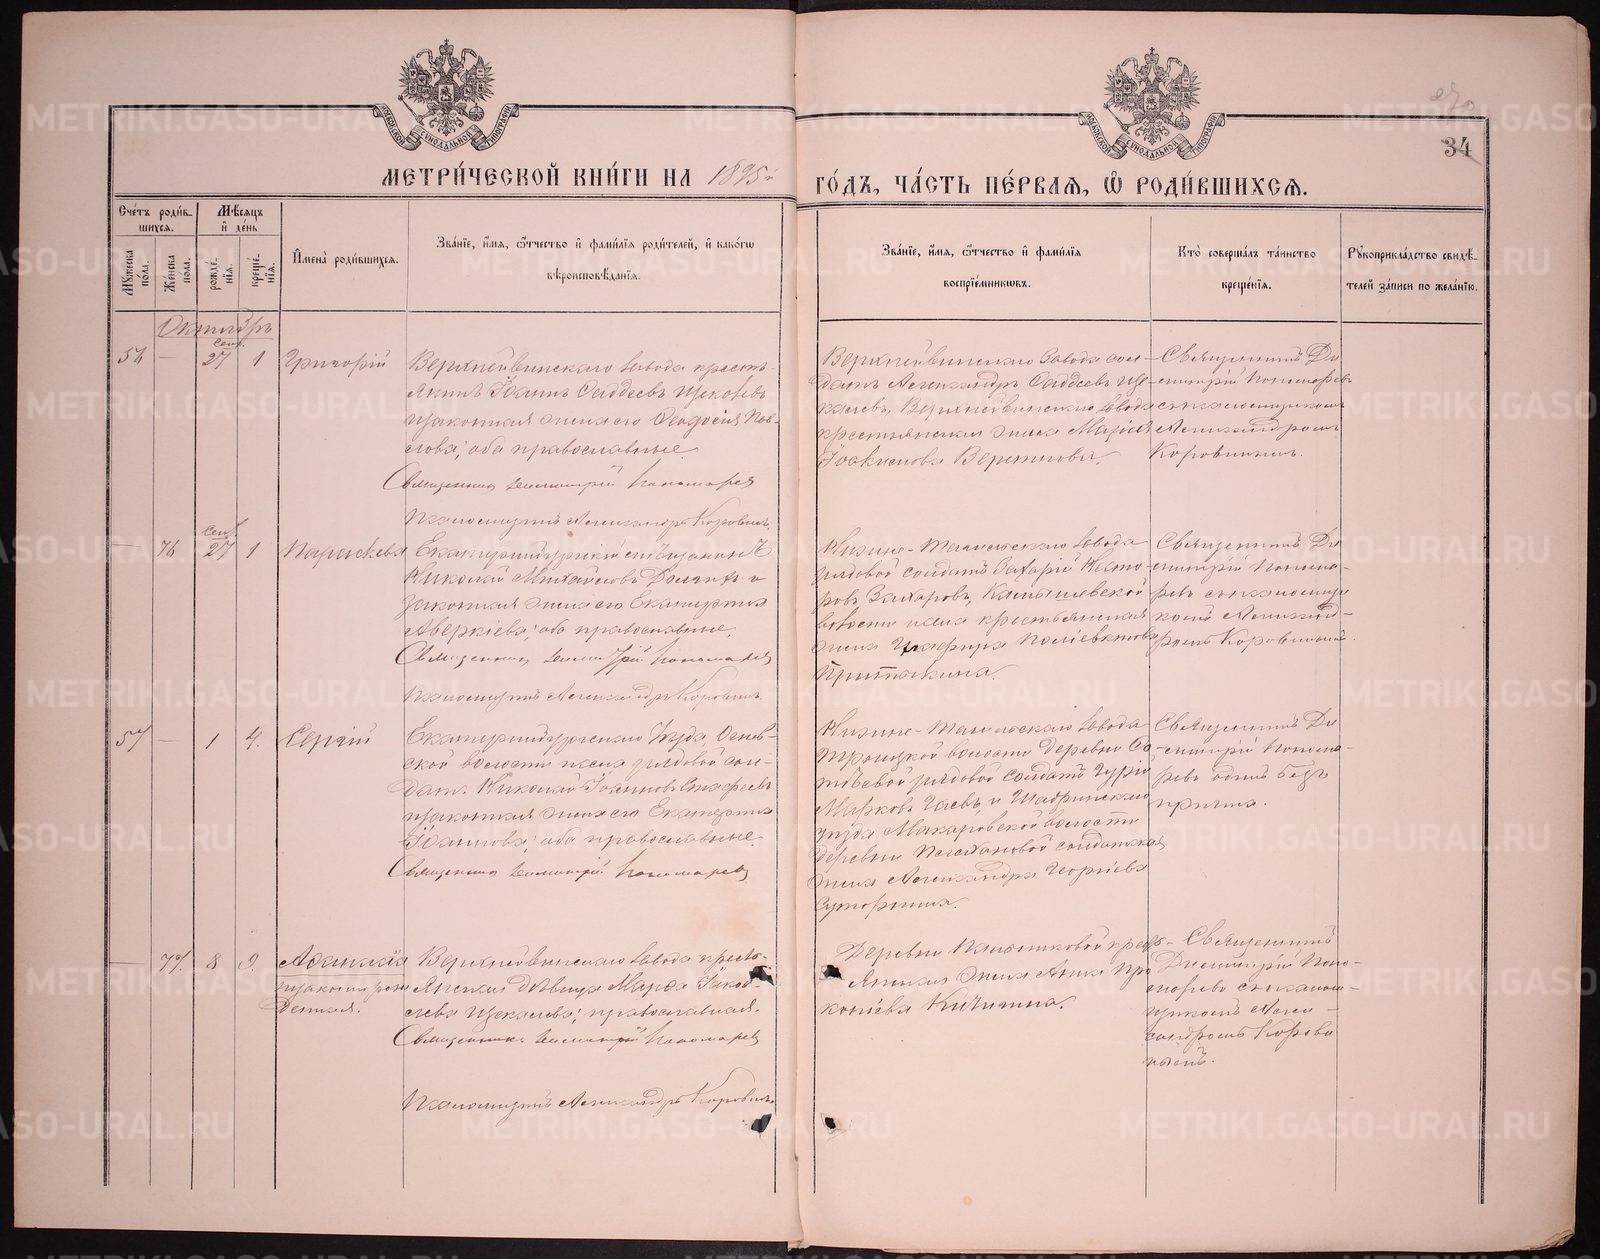 МЕТРИ́ЧЕСКОЙ КНИ́ГИ НА 1895й
ГО́ДЪ, ЧА́СТЬ ПЕ́РВАЯ, Ѡ҃ РОДИ́ВШИХСЯ.
34
Сче́тъ роди́в-
шихся.
Мꙋ́жеска по́ла.
Же́нска по́ла.
Мѣ́сяцъ
и҆ де́нь
рожде́-
нїя.
креще́-
нїя.
И҆мена̀ роди́вшихся.
Зва́нїе, и҆́мя, ѻ҆́тчество и҆ фами́лїя роди́телей, и҆ како́гѡ
вѣроисповѣ́данїя.
Зва́нїе, и҆́мя, ѻ҆́тчество и҆ фами́лїя
воспрїе́мникѡвъ.
Кто̀ соверша́лъ та́инство
креще́нїя.
Рꙋкоприкла́дство свидѣ́-
телей за́писи по жела́нїю.
Октябрь
56 — Сент. 27 1 Григорій
Верхнейвинскаго завода кресть-
янинъ Іоаннъ Фаддеевъ Щекалевъ
и законная жена его Феодосія Пав-
лова; оба православные.
Священникъ Димитрій Пономаревъ
Псаломщикъ Александръ Коровинъ.
Верхнейвинскаго завода сол-
датъ Александръ Фаддеевъ Ще-
калевъ, Верхнейвинскаго завода
крестьянская жена Марія
Іоакимова
Священникъ Ди-
митрій Пономаревъ
съ псаломщикомъ
Александромъ
Коровинымъ.
— 76 Сент. 27 1 Параскева
Екатеринбургскій мѣщанинъ
Николай Михайловъ и
законная жена его Екатерина
Аверкіева; оба православные.
Священникъ Димитрій Пономаревъ
Псаломщикъ Александръ Коровинъ.
Нижне-Тагильскаго завода
рядовой солдатъ Захарій Несто-
ровъ Захаровъ, Камышевской
волости села крестьянская
жена Глафира Поліевктова
Священникъ Ди-
митрій Понома-
ревъ съ псаломщи-
комъ Александ-
ромъ Коровинымъ.
57 — 1 4. Сергій
Екатеринбургскаго Уѣзда
волости села рядовой сол-
датъ Николай Іоанновъ
и законная жена его Екатерина
Іоаннова; оба православные.
Священникъ Димитрій Пономаревъ
Нижне-Тагильскаго завода
Троицкой волости деревни
рядовой солдатъ Гурій
Марковъ Гаевъ и Шадринскаго
уѣзда Макаровской волости
деревни солдатская
жена Александра Георгіева
Священникъ Ди-
митрій Понома-
ревъ одинъ безъ
причта.
— 77 8 9. Афанасія
незаконнорож-
денная.
Верхнейвинскаго завода кресть-
янская дѣвица Марѳа Іаков-
лева Щекалева; православная.
Священникъ Димитрій Пономаревъ
Псаломщикъ Александръ Коровинъ.
Деревни крест-
янская жена Анна Про-
копіева Кичигина.
Священникъ
Димитрій Поно-
маревъ съ псалом-
щикомъ Алек-
сандромъ Корови-
нымъ.
METRIKI.GASO-URAL.RU